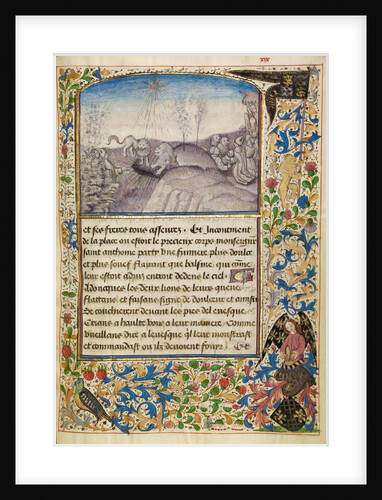 xix
et ses freres tous asseurs. Et Incontinent
de la place ou estoit le precieux corps monseigneur
saint anthoine party vne fumiere plus doulce
et plus souef flairant que balsme qui comme
leur estoit aduis entroit dedens le ciel
Adoncques les deux lions de leurs queues
flattans et faisans signe de douleur et ainsi
se coucherent deuant les pies del euesque
Crians a haulte voix a leur maniere Comme
vueillans dire a leuesque quil leur monstrast
et commandast ou ilz deuoient fouyr Et